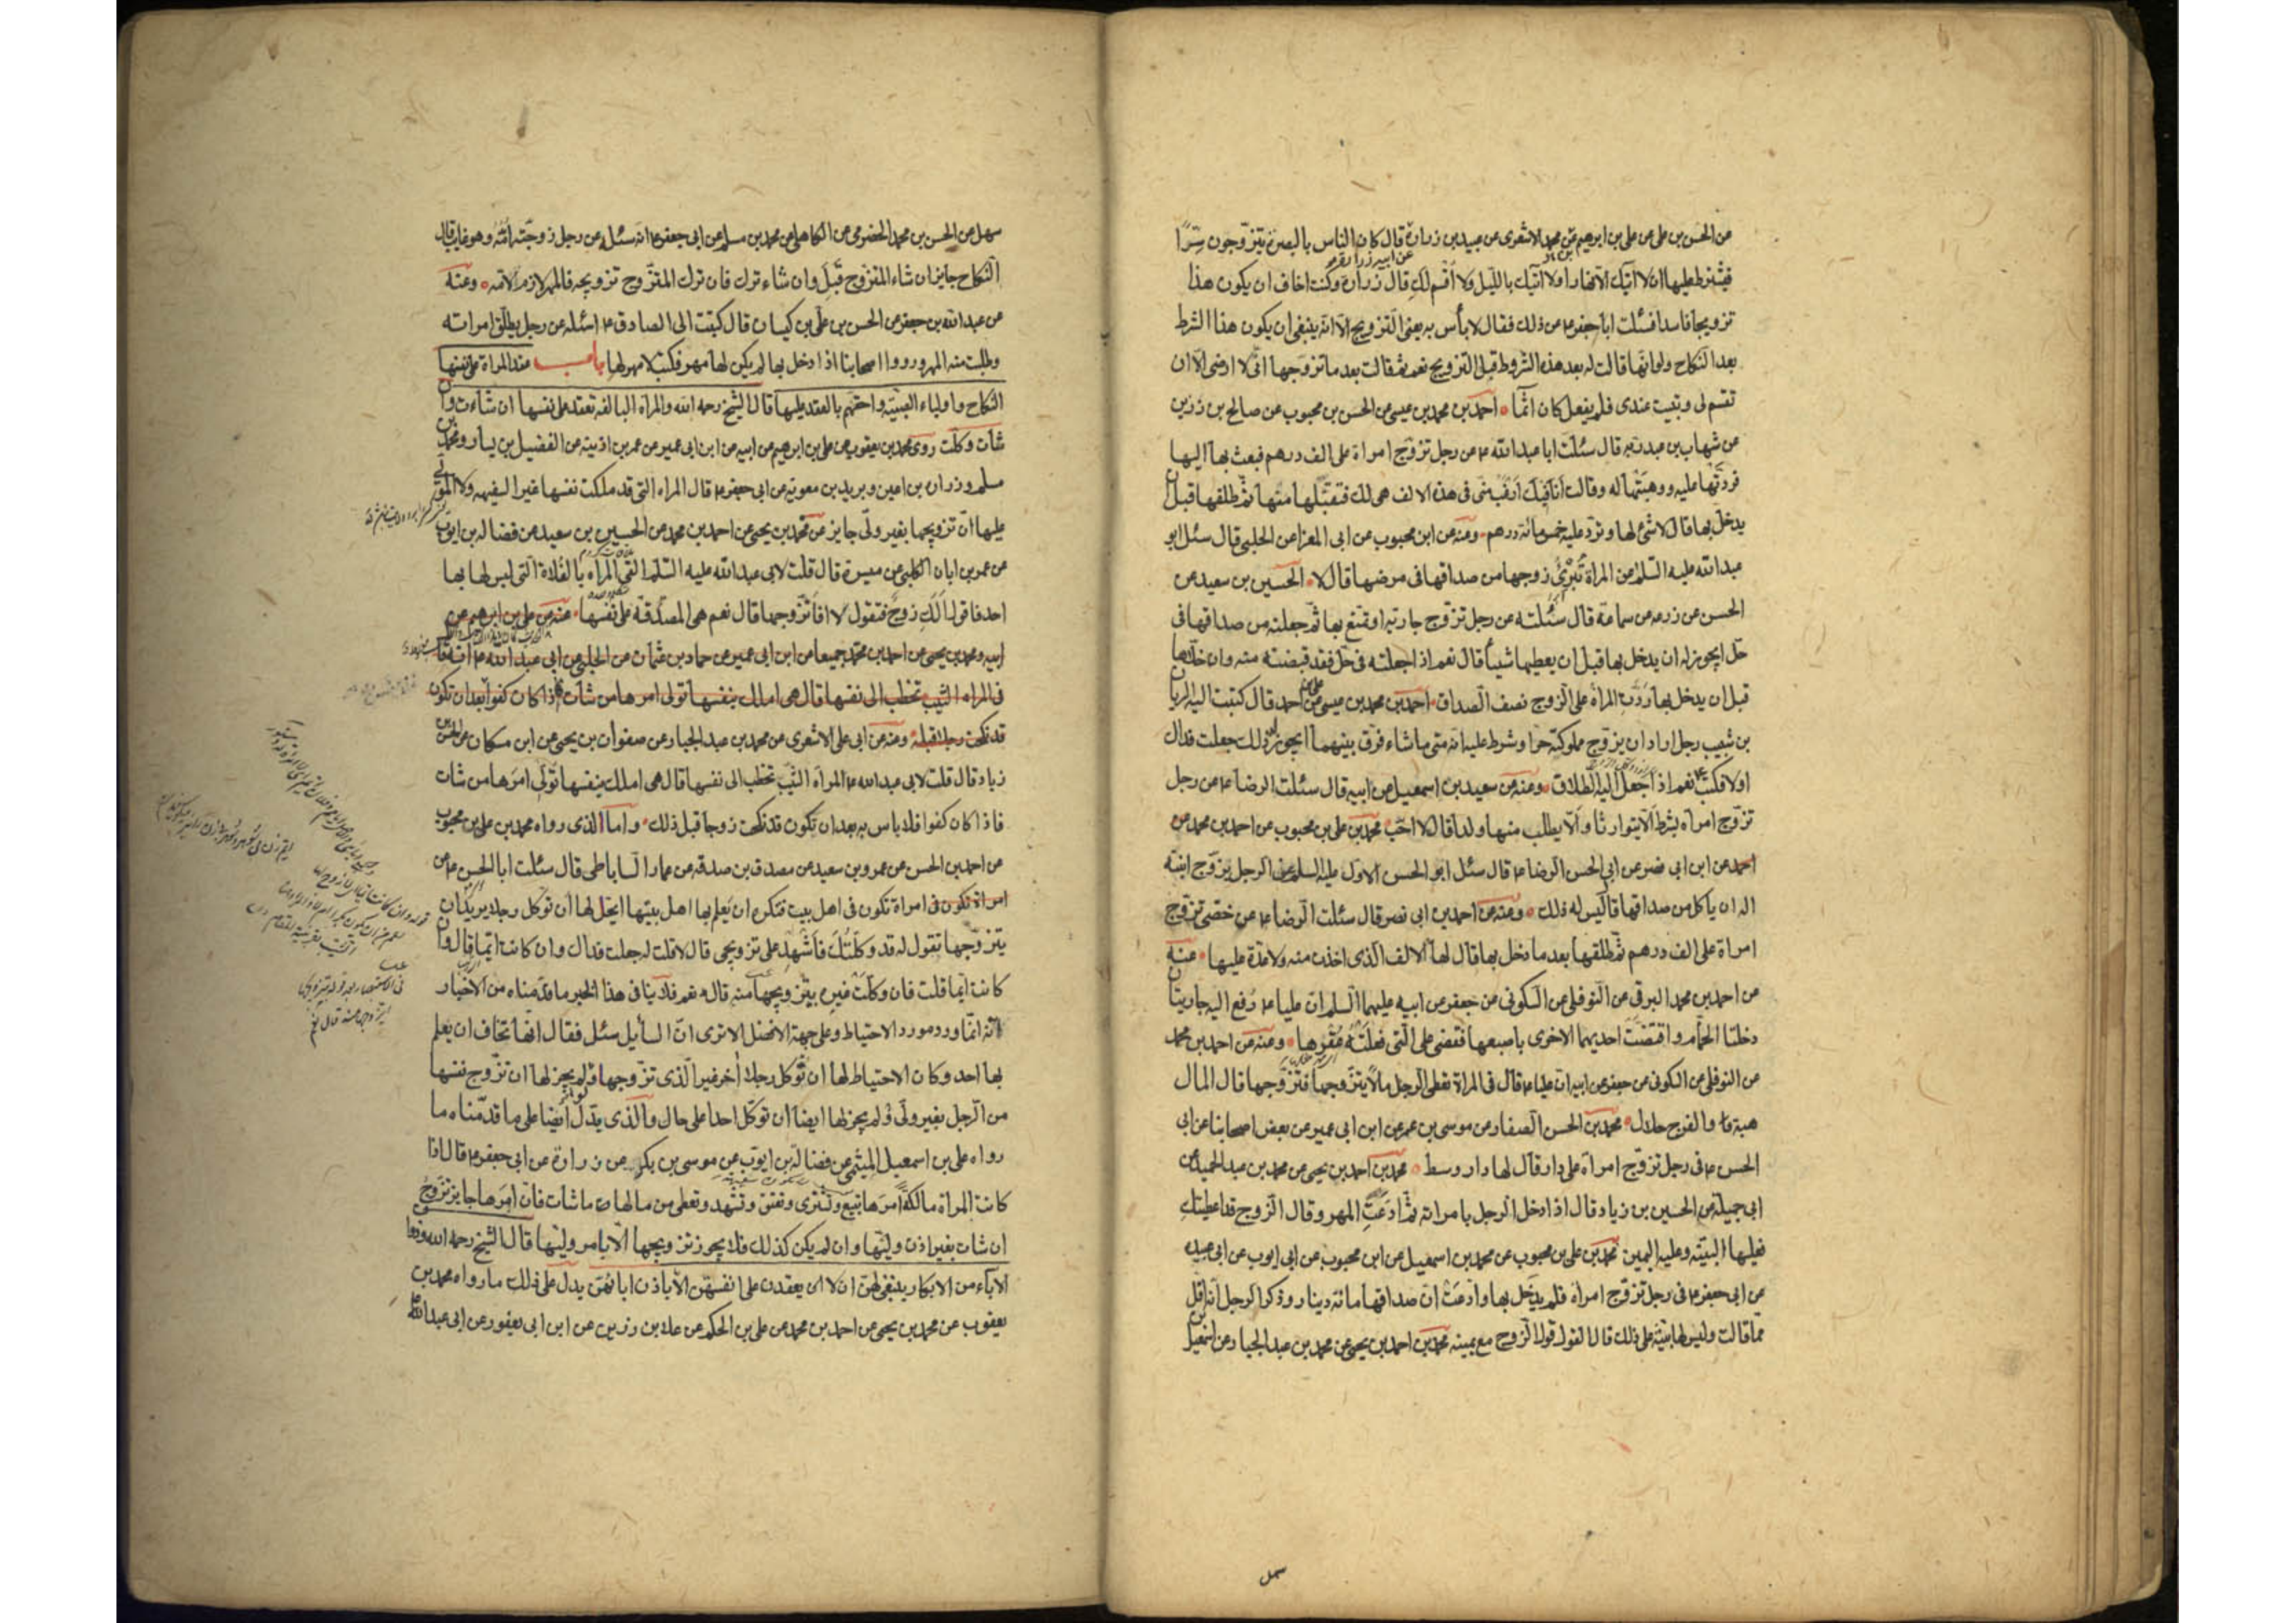 عن الحسن بن علي عن علي بن ابرهيم عن محمد الاشعرى عن عبيد بن زرارة قال كان الناس بالبصرة يتزوجون سرّاً
فيشترط عليها ان لا آتيك الا نهارا ولا آتيك بالليل ولا أقسم لكِ قال زرارة وكنت اخاف ان يكون هذا
تزويجا فاسدا فسئلت ابا جعفر ع عن ذلك فقال لا بأس به يعنى التزويج الا انه ينبغى ان يكون هذا الشرط
بعد النكاح ولو انها قالت له بعد هذه الشروط قبل التزويج نعم ثم قالت بعد ما تزوجها انّى لا ارضى الا ان
تقسم لى وتبيت عندى فلم يفعل كان اثما احمد بن محمد بن عيسى عن الحسن بن محبوب عن صالح بن رزين
عن شهاب بن عبد ربه قال سئلت ابا عبد الله ع عن رجل تزوج امراة على الف درهم فبعث بها اليها
فردتها عليه ووهبتها له وقالت انا فيك ارغب منى فى هذه الالف هى لك فتقبلها منها ثم طلقها قبل ان
يدخل بها قال لا شئ لها وترد عليه خمسمائة درهم ومنه عن ابن محبوب عن ابى المعزا عن الحلبى قال سئل ابو
عبد الله عليه السلم عن المراة تُبرئُ زوجها من صداقها فى مرضها قال لا الحسين بن سعيد عن
الحسن عن زرعه عن سماعة قال سئلته عن رجل تزوج جارية او تمتع بها ثم جعلته من صداقها فى
حل ايجوز له ان يدخل بها قبل ان يعطيها شيئا قال نعم اذا جعلته فى حل فقد قبضته منه وان خلاها
قبل ان يدخل بها ردّت المراة على الزوج نصف الصداق احمد بن محمد بن عيسى عن على بن احمد قال كتبت اليه الريان
بن شبيب رجل اراد ان يزوج مملوكته حرا وشرط عليه انه متى ما شاء فرق بينهما ايجوز له ذلك جعلت فداك
او لا فكتب ع نعم اذا جعل اليه الطلاق ومنه عن سعيد بن اسمعيل عن ابيه قال سئلت الرضا ع عن رجل
تزوج امراه بشرط الا يتوارثا والا يطلب منها ولدا قال لا احب محمد بن على بن محبوب عن احمد بن محمد عن
احمد عن ابن ابى نصر عن ابى الحسن الرضا ع قال سئل ابو الحسن الاول عليه السلم عن الرجل يزوج ابنته
اله ان ياكل من صداقها قال ليس له ذلك ومنه عن احمد بن ابى نصر قال سئلت الرضا ع عن خصى تزوج
امراة على الف درهم ثم طلقها بعد ما دخل بها قال لها الالف الذى اخذت منه ولا عدة عليها عنه
عن احمد بن محمد البرقى عن النوفلى عن السكونى عن جعفر عن ابيه عليهما السلم ان عليا ع رُفع اليه جاريتان
دخلتا الحمام واقتضت احديهما الاخرى باصبعها فقضى على التى فعلته عُقرها ومنه عن احمد بن محمد
عن النوفلى عن السكونى عن جعفر عن ابيه ان عليا ع قال فى المراة تعطى الرجل مالا يتزوجها فتزوجها قال المال
هبة والفرج حلال محمد بن الحسن الصفار عن موسى بن عمر عن ابن ابى عمير عن بعض اصحابنا عن ابى
الحسن ع فى رجل تزوج امراة على دار قال لها دار وسط محمد بن احمد بن يحيى عن محمد بن عبد الحميد عن
ابى جميلة عن الحسين بن زياد قال اذا دخل الرجل بامراته ثم ادعت المهر وقال الزوج قد اعطيتكِ
فعليها البينة وعليه اليمين محمد بن على بن محبوب عن محمد بن اسمعيل عن ابن محبوب عن ابى ايوب عن ابى عبيده
عن ابى جعفر ع فى رجل تزوج امراة فلم يدخل بها وادعت ان صداقها مائة دينار وذكر الرجل انه اقل
مما قالت وليس لها بينة على ذلك قال القول قول الزوج مع يمينه محمد بن احمد بن يحيى عن محمد بن عبد الجبار عن اسمعيل بن
سهل
سهل عن الحسن بن محمد الحضرمى عن الكاهلى عن محمد بن مسلم عن ابى جعفر ع انه سئله عن رجل زوجته امّه وهو غايب قال
النكاح جايز ان شاء المتزوج قَبِلَ وان شاء ترك فان ترك المتزوج تزويجه فالمهر لازم لامّه وعنه
عن عبد الله بن جعفر عن الحسن بن على بن كيسان قال كتبت الى الصادق ع اسئله عن رجل يطلق امراته
وطلبت منه المهر ورووا اصحابنا اذا دخل بها لم يكن لها مهر فكتب لا مهر لها باب عقد المراة على نفسها
النكاح واولياء الصبية واحقهم بالعقد عليها قال الشيخ رحمه الله والمراة البالغه تعقد على نفسها ان شاءت وان
شات وكلت روى محمد بن يعقوب عن على بن ابرهيم عن ابيه عن ابن ابى عمير عن عمر بن اذينه عن الفضيل بن يسار ومحمد بن
مسلم وزرارة بن اعين وبريد بن معوية عن ابى جعفر ع قال المراه التى قد ملكت نفسها غير السفيهه ولا المولّى
عليها ان تزويجها بغير ولى جايز عن محمد بن يحيى عن احمد بن محمد عن الحسين بن سعيد عن فضاله بن ايوب
عن عمر بن ابان الكلبى عن ميسرة قال قلت لابى عبد الله عليه السلم القى المراه بالفلاة التى ليس لها بها
احد فاقول ألكِ زوج فتقول لا افاتزوجها قال نعم هى المصدقة على نفسها عنه عن على بن ابرهيم عن
ابيه ومحمد بن يحيى عن احمد بن محمد جميعا عن ابن ابى عمير عن حماد بن عثمان عن الحلبى عن ابى عبد الله ع انه قال
فى المراه الثيب تخطب الى نفسها قال هى املك بنفسها تولى امرها من شات اذا كان كفوا بعد ان تكون
قد نكحت رجلا قبله ومنه عن ابى على الاشعرى عن محمد بن عبد الجبار عن صفوان بن يحيى عن ابن مسكان عن الحسن بن
زياد قال قلت لابى عبد الله ع المراة الثيب تخطب الى نفسها قال هى املك بنفسها تولى امرها من شات
فاذا كان كفوا فلا باس به بعد ان تكون قد نكحت زوجا قبل ذلك واما الذى رواه محمد بن على بن محبوب
عن احمد بن الحسن عن عمرو بن سعيد عن مصدق بن صدقه عن عمار الساباطى قال سئلت ابا الحسن ع عن
امراة تكون فى اهل بيت فتكره ان يعلم بها اهل بيتها ايحل لها ان توكل رجلا يريد ان
يتزوجها تقول له قد وكلتُك فاشهد على تزويجى قال لا قلت له جعلت فداك وان كانت ايّما قال وان
كانت ايّما قلت فان وكلت غيره بتزويجها منه قال نعم فلا ينافى هذا الخبر ما قدمناه من الاخبار
لانه انما ورد مورد الاحتياط وعلى جهة الافضل الا ترى ان السايل سئل فقال انها تخاف ان يعلم
بها احد وكان الاحتياط لها ان توكل رجلا اخر غير الذى تزوجها ولم يجز لها ان تزوج نفسها
من الرجل بغير ولى ولم يجز لها ايضا ان توكل احدا على حال والذى يدل ايضا على ما قدمناه ما
رواه على بن اسمعيل الميثمى عن فضالة بن ايوب عن موسى بن بكر عن زرارة عن ابى جعفر ع قال اذا
كانت المراة مالكة امرها تبيع وتشترى وتعتق وتشهد وتعطى من مالها ما شات فان امرها جايز تزوج
ان شات بغير اذن وليها وان لم يكن كذلك فلا يجوز تزويجها الا بامر وليها قال الشيخ رحمه الله وذوات
الآباء من الابكار ينبغى لهن ان لا يعقدن على انفسهن الا باذن ابائهن يدل على ذلك ما رواه محمد بن
يعقوب عن محمد بن يحيى عن احمد بن محمد عن على بن الحكم عن علا بن رزين عن ابن ابى يعفور عن ابى عبد الله ع